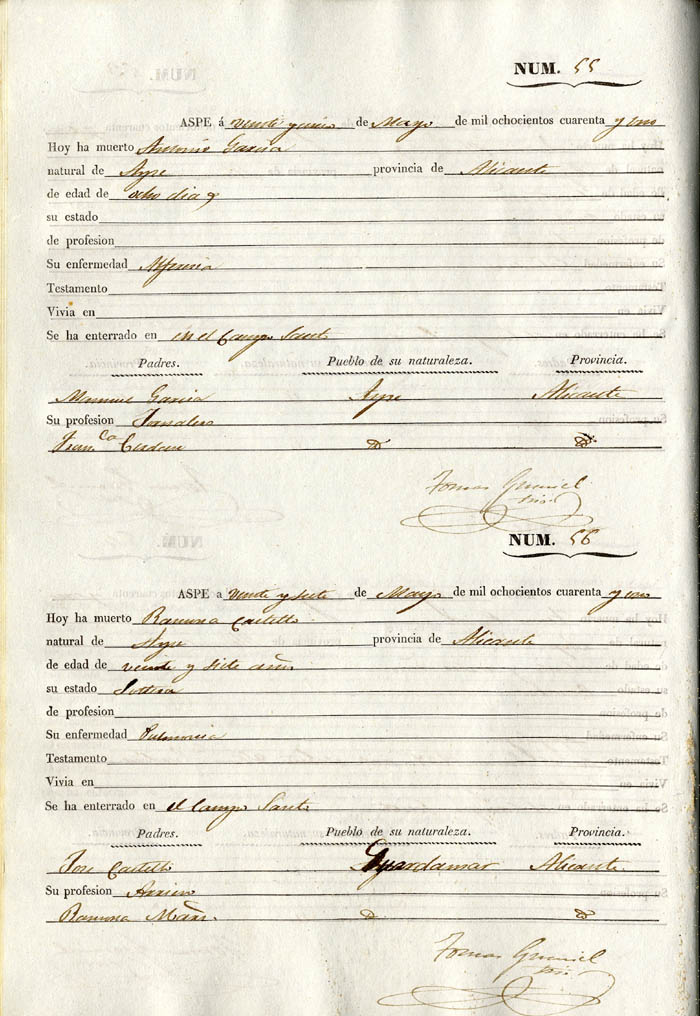 NUM. 55
ASPE á veinte y cinco de Mayo de mil ochocientos cuarenta y uno
Hoy ha muerto Antonio Garcia
natural de Aspe provincia de Alicante
de edad de ocho dias
su estado
de profesion
Su enfermedad Alferecia
Testamento
Vivia en
Se ha enterrado en en el Campo Santo
Padres. Pueblo de su naturaleza. Provincia.
Manuel Garcia Aspe Alicante
Su profesion Jornalero
Fran.ca Cerdan D. D.
Tomas
NUM. 56
ASPE a veinte y siete de Mayo de mil ochocientos cuarenta y uno
Hoy ha muerto Ramona Castello
natural de Aspe provincia de Alicante
de edad de veinte y siete años
su estado Soltera
de profesion
Su enfermedad Pulmonia
Testamento
Vivia en
Se ha enterrado en el Campo Santo
Padres. Pueblo de su naturaleza. Provincia.
Jose Castello Guardamar Alicante
Su profesion Arriero
Ramona D. D.
Tomas